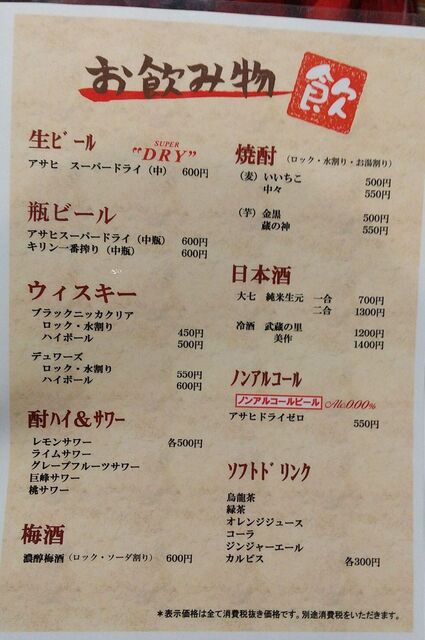 お飲み物
飲
生ビール
SUPER
"DRY"
アサヒ スーパードライ（中） 600円
瓶ビール
アサヒスーパードライ（中瓶） 600円
キリン一番搾り（中瓶） 600円
ウィスキー
ブラックニッカクリア
ロック・水割り 450円
ハイボール 500円
デュワーズ
ロック・水割り 550円
ハイボール 600円
酎ハイ＆サワー
レモンサワー 各500円
ライムサワー
グレープフルーツサワー
巨峰サワー
桃サワー
梅酒
濃醇梅酒（ロック・ソーダ割り） 600円
焼酎 （ロック・水割り・お湯割り）
（麦）いいちこ 500円
中々 550円
（芋）金黒 500円
蔵の神 550円
日本酒
大七 純米生元 一合 700円
二合 1300円
冷酒 武蔵の里 1200円
美作 1400円
ノンアルコール
ノンアルコールビール Alc.0.00%
アサヒドライゼロ 550円
ソフトドリンク
烏龍茶
緑茶
オレンジジュース
コーラ
ジンジャーエール
カルピス 各300円
＊表示価格は全て消費税抜き価格です。別途消費税をいただきます。